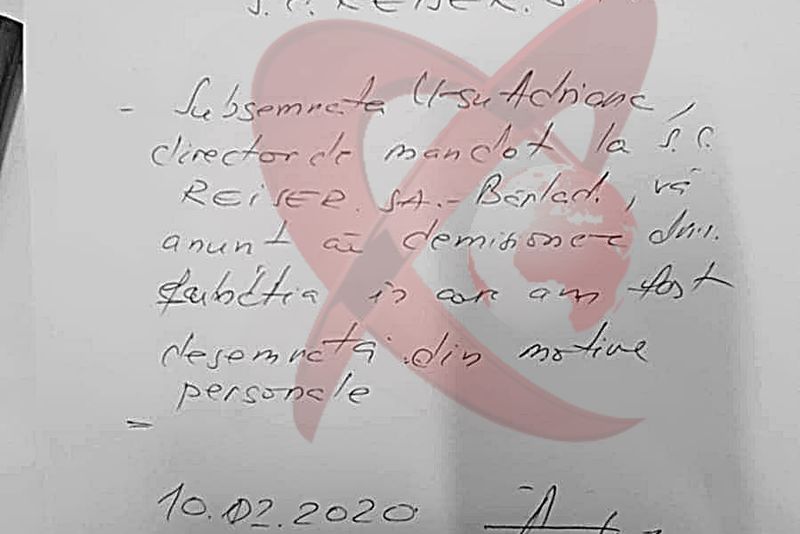 S.C. REISER. S
- Subsemnata Ursu Adriana,
director de mandat la S.C.
REISER. SA. - Bârlad., vă
anunț că demisionez din
funcția în care am fost
desemnată din motive
personale
10.02.2020